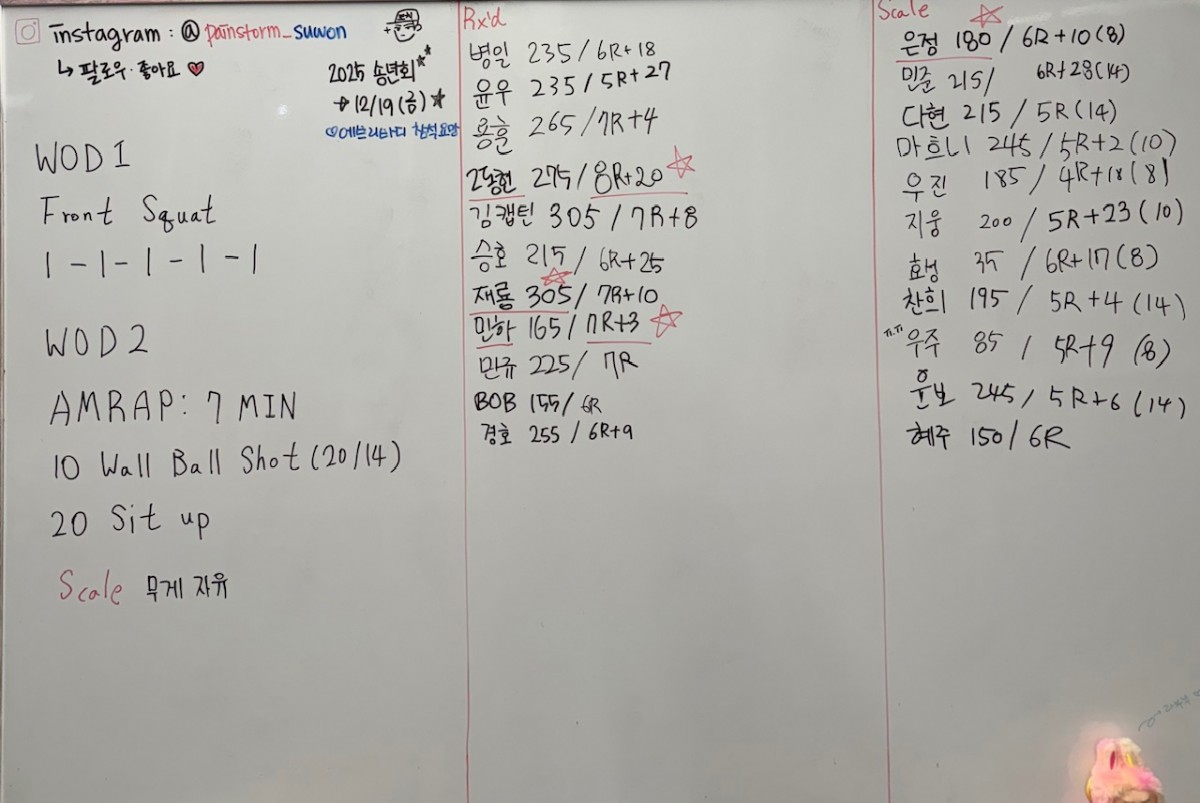 instagram : @painstorm_suwon
↳ 팔로우·좋아요 ♥
2025 송년회**
→ 12/19(금)*
♡에브리바디 참석요망
WOD 1
Front Squat
1 - 1 - 1 - 1 - 1
WOD 2
AMRAP: 7 MIN
10 Wall Ball Shot (20/14)
20 Sit up
Scale 무게 자유
Rx'd
병일 235 / 6R+18
윤우 235 / 5R+27
용훈 265 / 7R+4
2동현 275 / 8R+20 ☆
김캡틴 305 / 7R+8
승호 215 / 6R+25
재룡 305 / 7R+10 ☆
민하 165 / 7R+3 ☆
민규 225 / 7R
BOB 155 / 6R
경호 255 / 6R+9
Scale
은정 180 / 6R+10 (8) ☆
민준 215 / 6R+28 (14)
다현 215 / 5R (14)
마흐니 245 / 5R+2 (10)
우진 185 / 4R+18 (8)
지웅 200 / 5R+23 (10)
효성 35 / 6R+17 (8)
찬희 195 / 5R+4 (14)
ㅠ.ㅠ 우주 85 / 5R+9 (8)
윤보 245 / 5R+6 (14)
혜주 150 / 6R